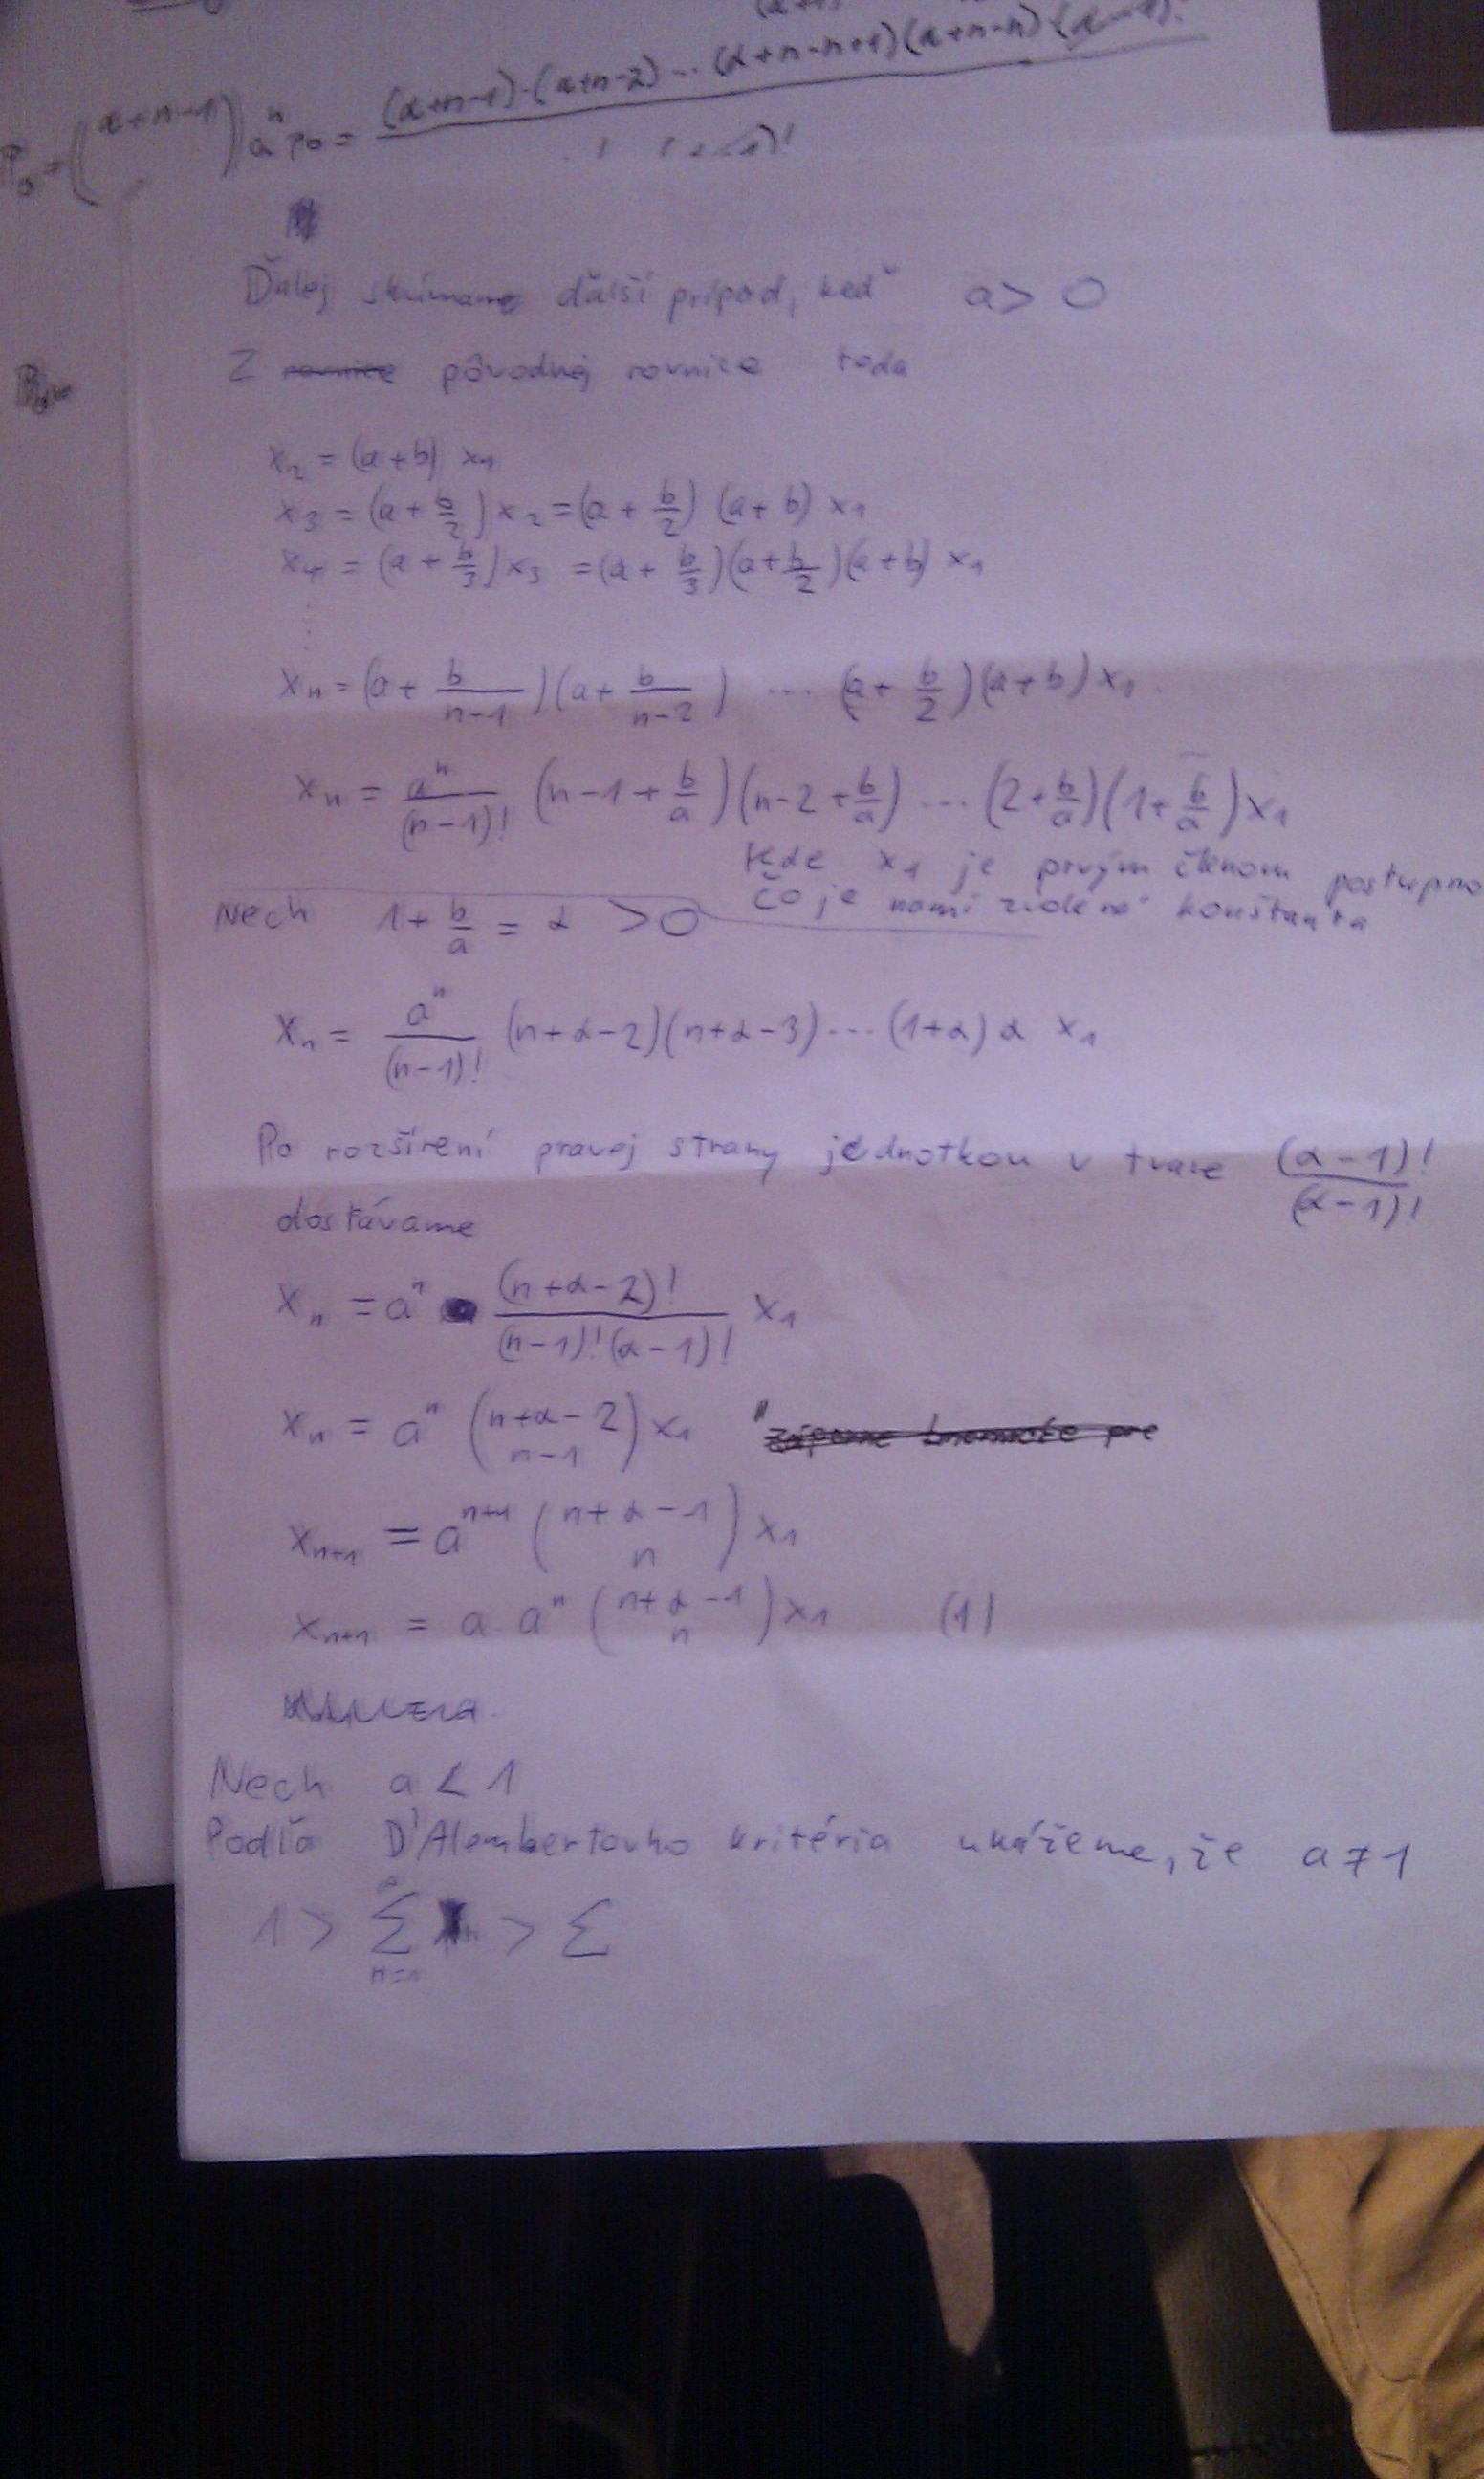 (α+n-1)·(α+n-2) ... (α+n-n+1)(α+n-n)·(α-1)!
P₀ = (α+n-1) aⁿ p₀ =
Ďalej skúmame ďalší prípad, keď a > 0
Z rovnice pôvodnej rovnice teda
x₂ = (a+b) x₁
x₃ = (a + b/2) x₂ = (a + b/2) (a + b) x₁
x₄ = (a + b/3) x₃ = (a + b/3)(a + b/2)(a + b) x₁
⋮
xₙ = (a + b/(n-1))(a + b/(n-2)) ... (a + b/2)(a + b) x₁
xₙ = aⁿ/(n-1)! (n-1 + b/a)(n-2 + b/a) ... (2 + b/a)(1 + b/a) x₁
kde x₁ je prvým členom postupno
čo je nami zvolená konštanta
Nech 1 + b/a = α > 0
xₙ = aⁿ/(n-1)! (n+α-2)(n+α-3) ... (1+α) α x₁
Po rozšírení pravej strany jednotkou v tvare (α-1)!/(α-1)!
dostávame
xₙ = aⁿ (n+α-2)!/((n-1)!(α-1)!) x₁
xₙ = aⁿ (n+α-2 over n-1) x₁
xₙ₊₁ = aⁿ⁺¹ (n+α-1 over n) x₁
xₙ₊₁ = a · aⁿ (n+α-1 over n) x₁ (1)
Nech a < 1
Podľa D'Alembertovho kritéria ukážeme, že a ≠ 1
1 > Σ > Σ